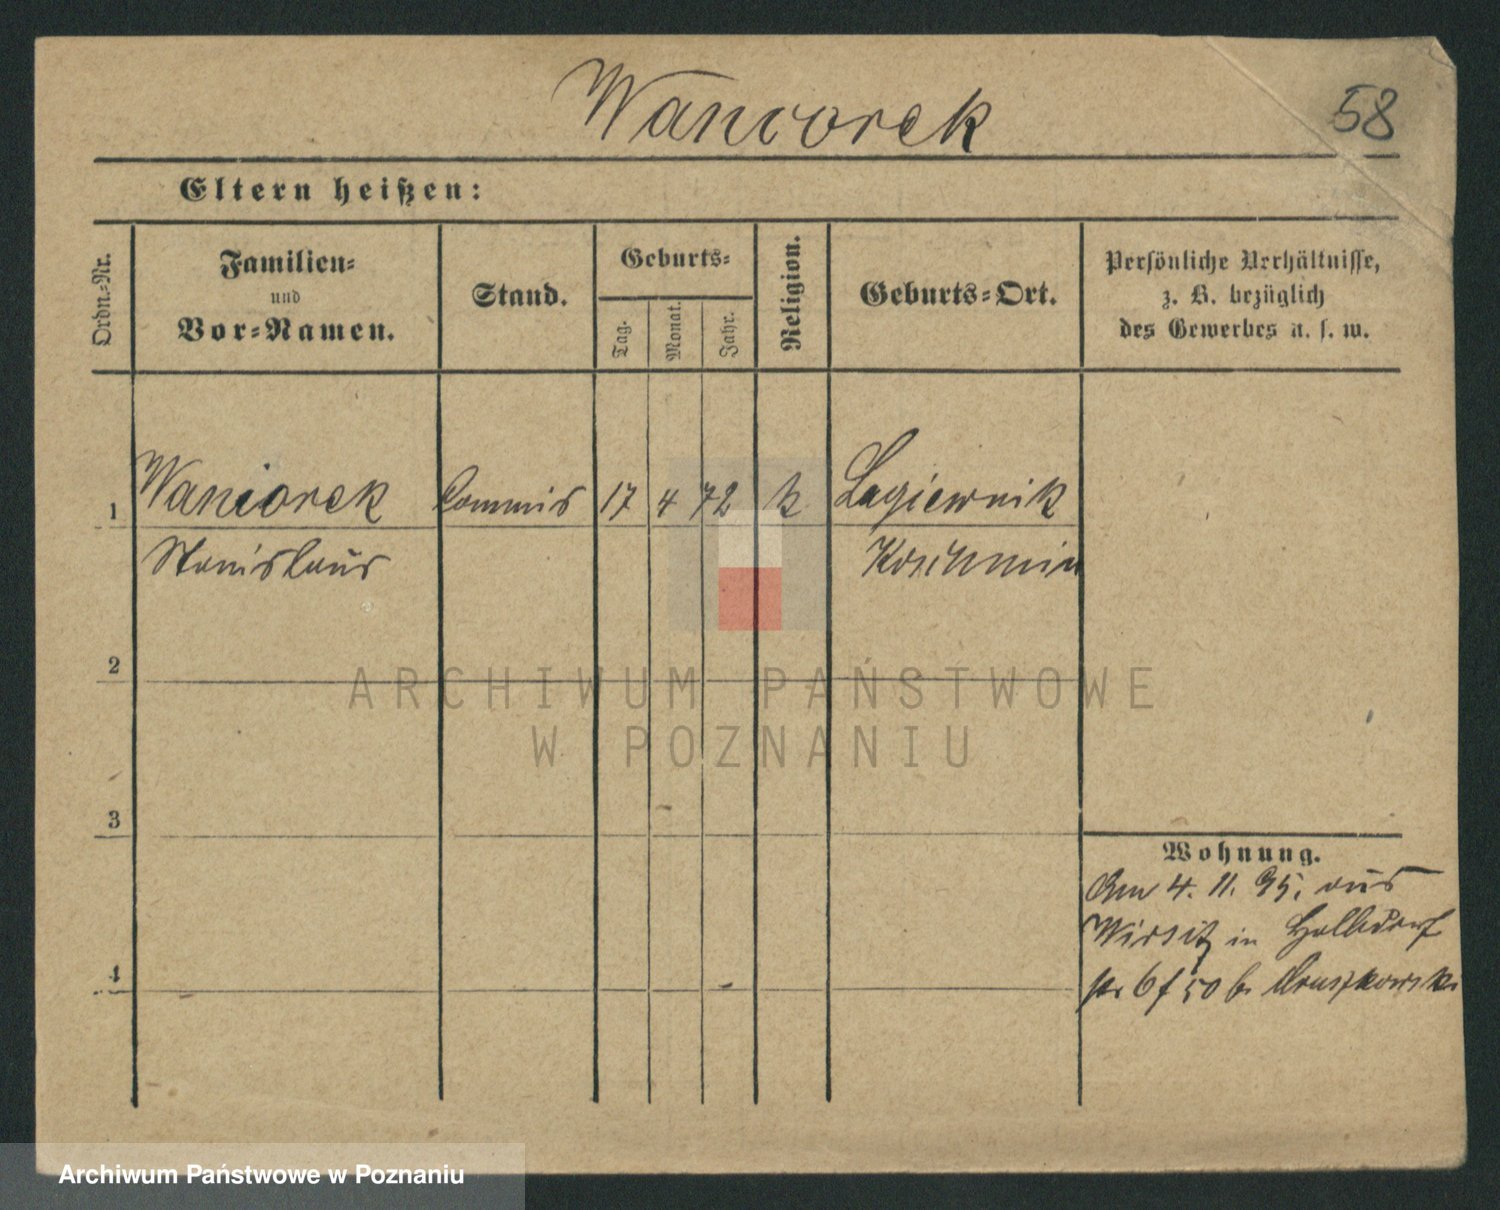 Waniorek
58
Eltern heißen:
Ordn.-Nr.
Familien-
und
Vor-Namen.
Stand.
Geburts-
Tag.
Monat.
Jahr.
Religion.
Geburts-Ort.
Persönliche Verhältnisse,
z. B. bezüglich
des Gewerbes u. s. w.
1 Waniorek Commis 17 4 72 k Lagiewnik
Stanislaus Koschmin
2
3
4
Wohnung.
Am 4. 11. 95. aus
Wirsitz in Halbdorf
str 6 f 50 b.
ARCHIWUM PAŃSTWOWE
W POZNANIU
Archiwum Państwowe w Poznaniu